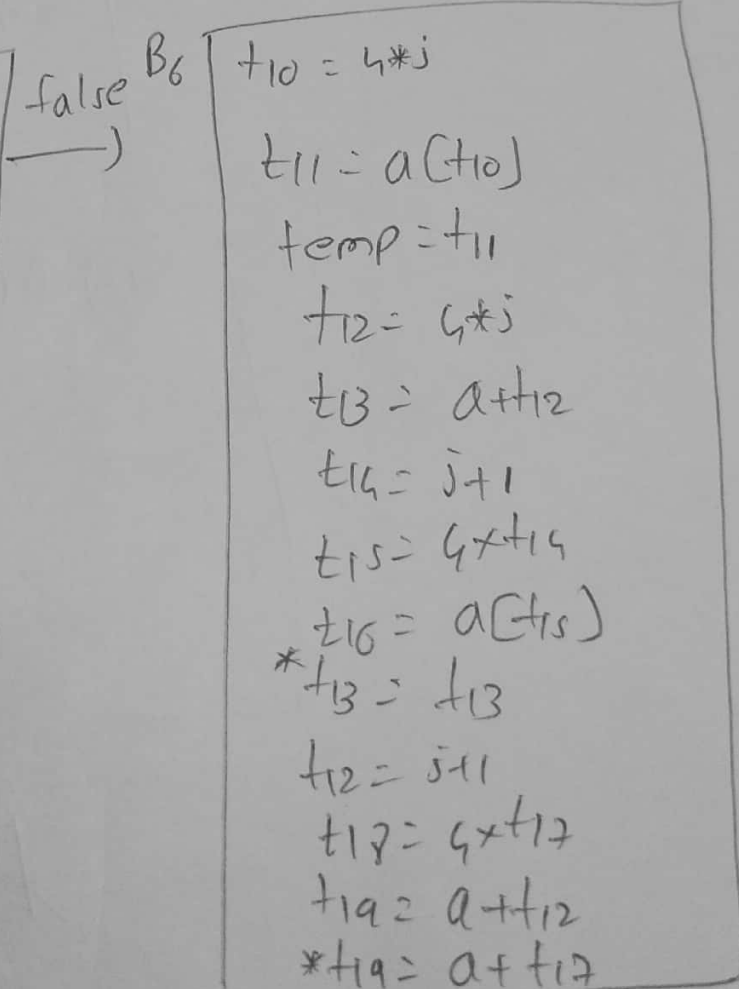 false
B6
t10 = 4*j
t11 = a[t10]
temp = t11
t12 = 4*j
t13 = a+t12
t14 = j+1
t15 = 4*t14
t16 = a[t15]
*t13 = t13
t12 = j+1
t18 = 4*t17
t19 = a+t12
*t19 = a+t17